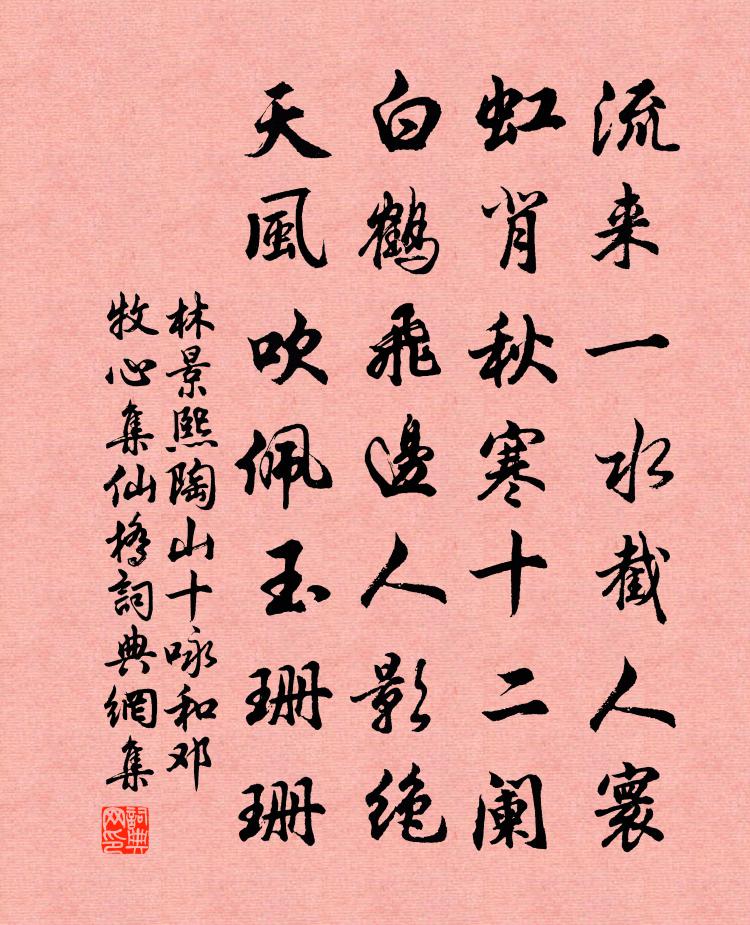 流来一水截人寰
虹背秋寒十二阑
白鹤飛邊人影绝
天風吹佩玉珊珊
林景熙陶山十咏和邓
牧心集仙橋詞典網集
詞典网印